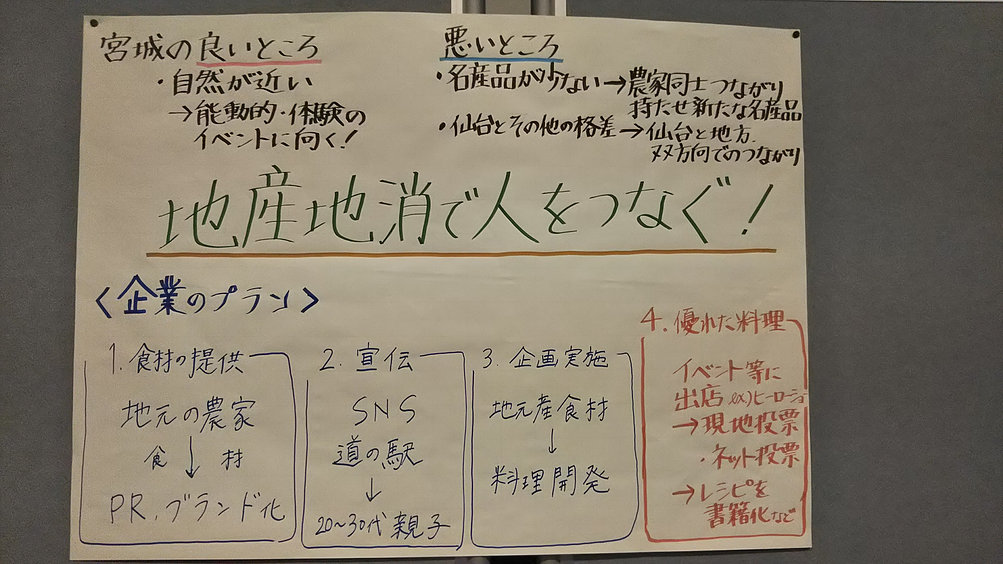 宮城の良いところ
・自然が近い
→能動的・体験の
イベントに向く!
悪いところ
・名産品が少ない→農家同士つながり
持たせ新たな名産品
・仙台とその他の格差→仙台と地方
双方向でのつながり
地産地消で人をつなぐ!
〈企業のプラン〉
1.食材の提供
地元の農家
食↓材
PR.ブランド化
2.宣伝
SNS
道の駅
↓
20~30代親子
3.企画実施
地元産食材
↓
料理開発
4.優れた料理
イベント等に
出店 ex)ヒーローショ
→現地投票
・ネット投票
→レシピを
書籍化など